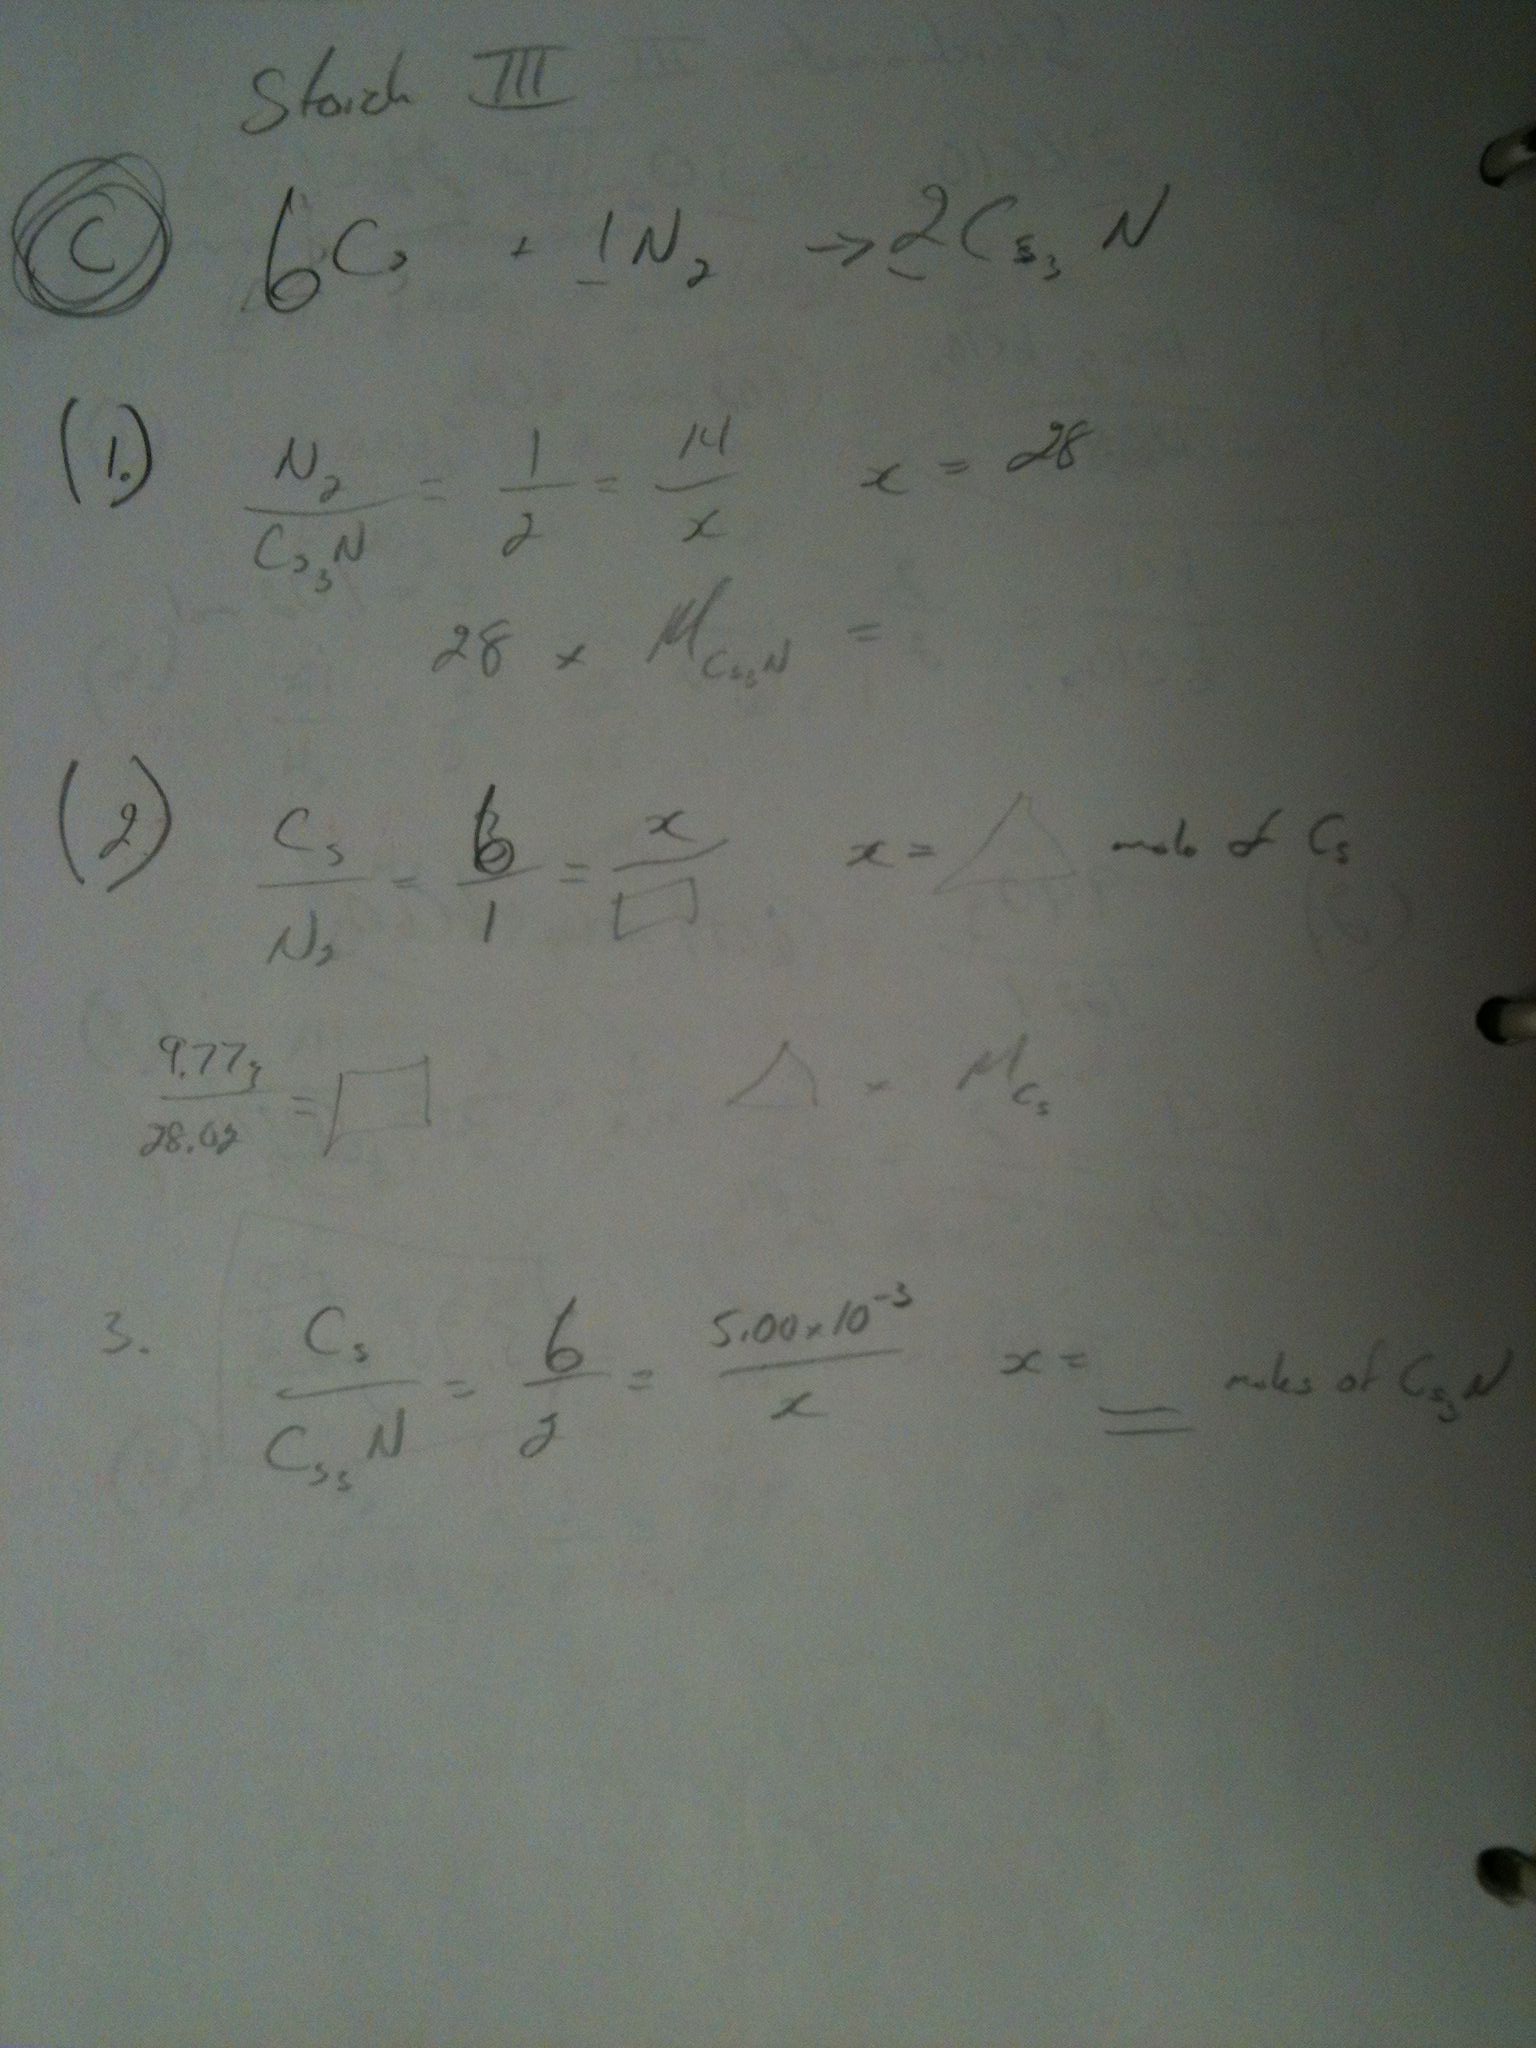 Stoich III
C 6Cs + 1N2 → 2Cs3N
(1.) N2/Cs3N = 1/2 = 14/x x = 28
28 × MCs3N =
(2) Cs/N2 = 6/1 = x/□ x = △ mols of Cs
9.77g/28.02 = □ △ × MCs
3. Cs/Cs3N = 6/2 = 5.00×10⁻³/x x = __ moles of Cs3N